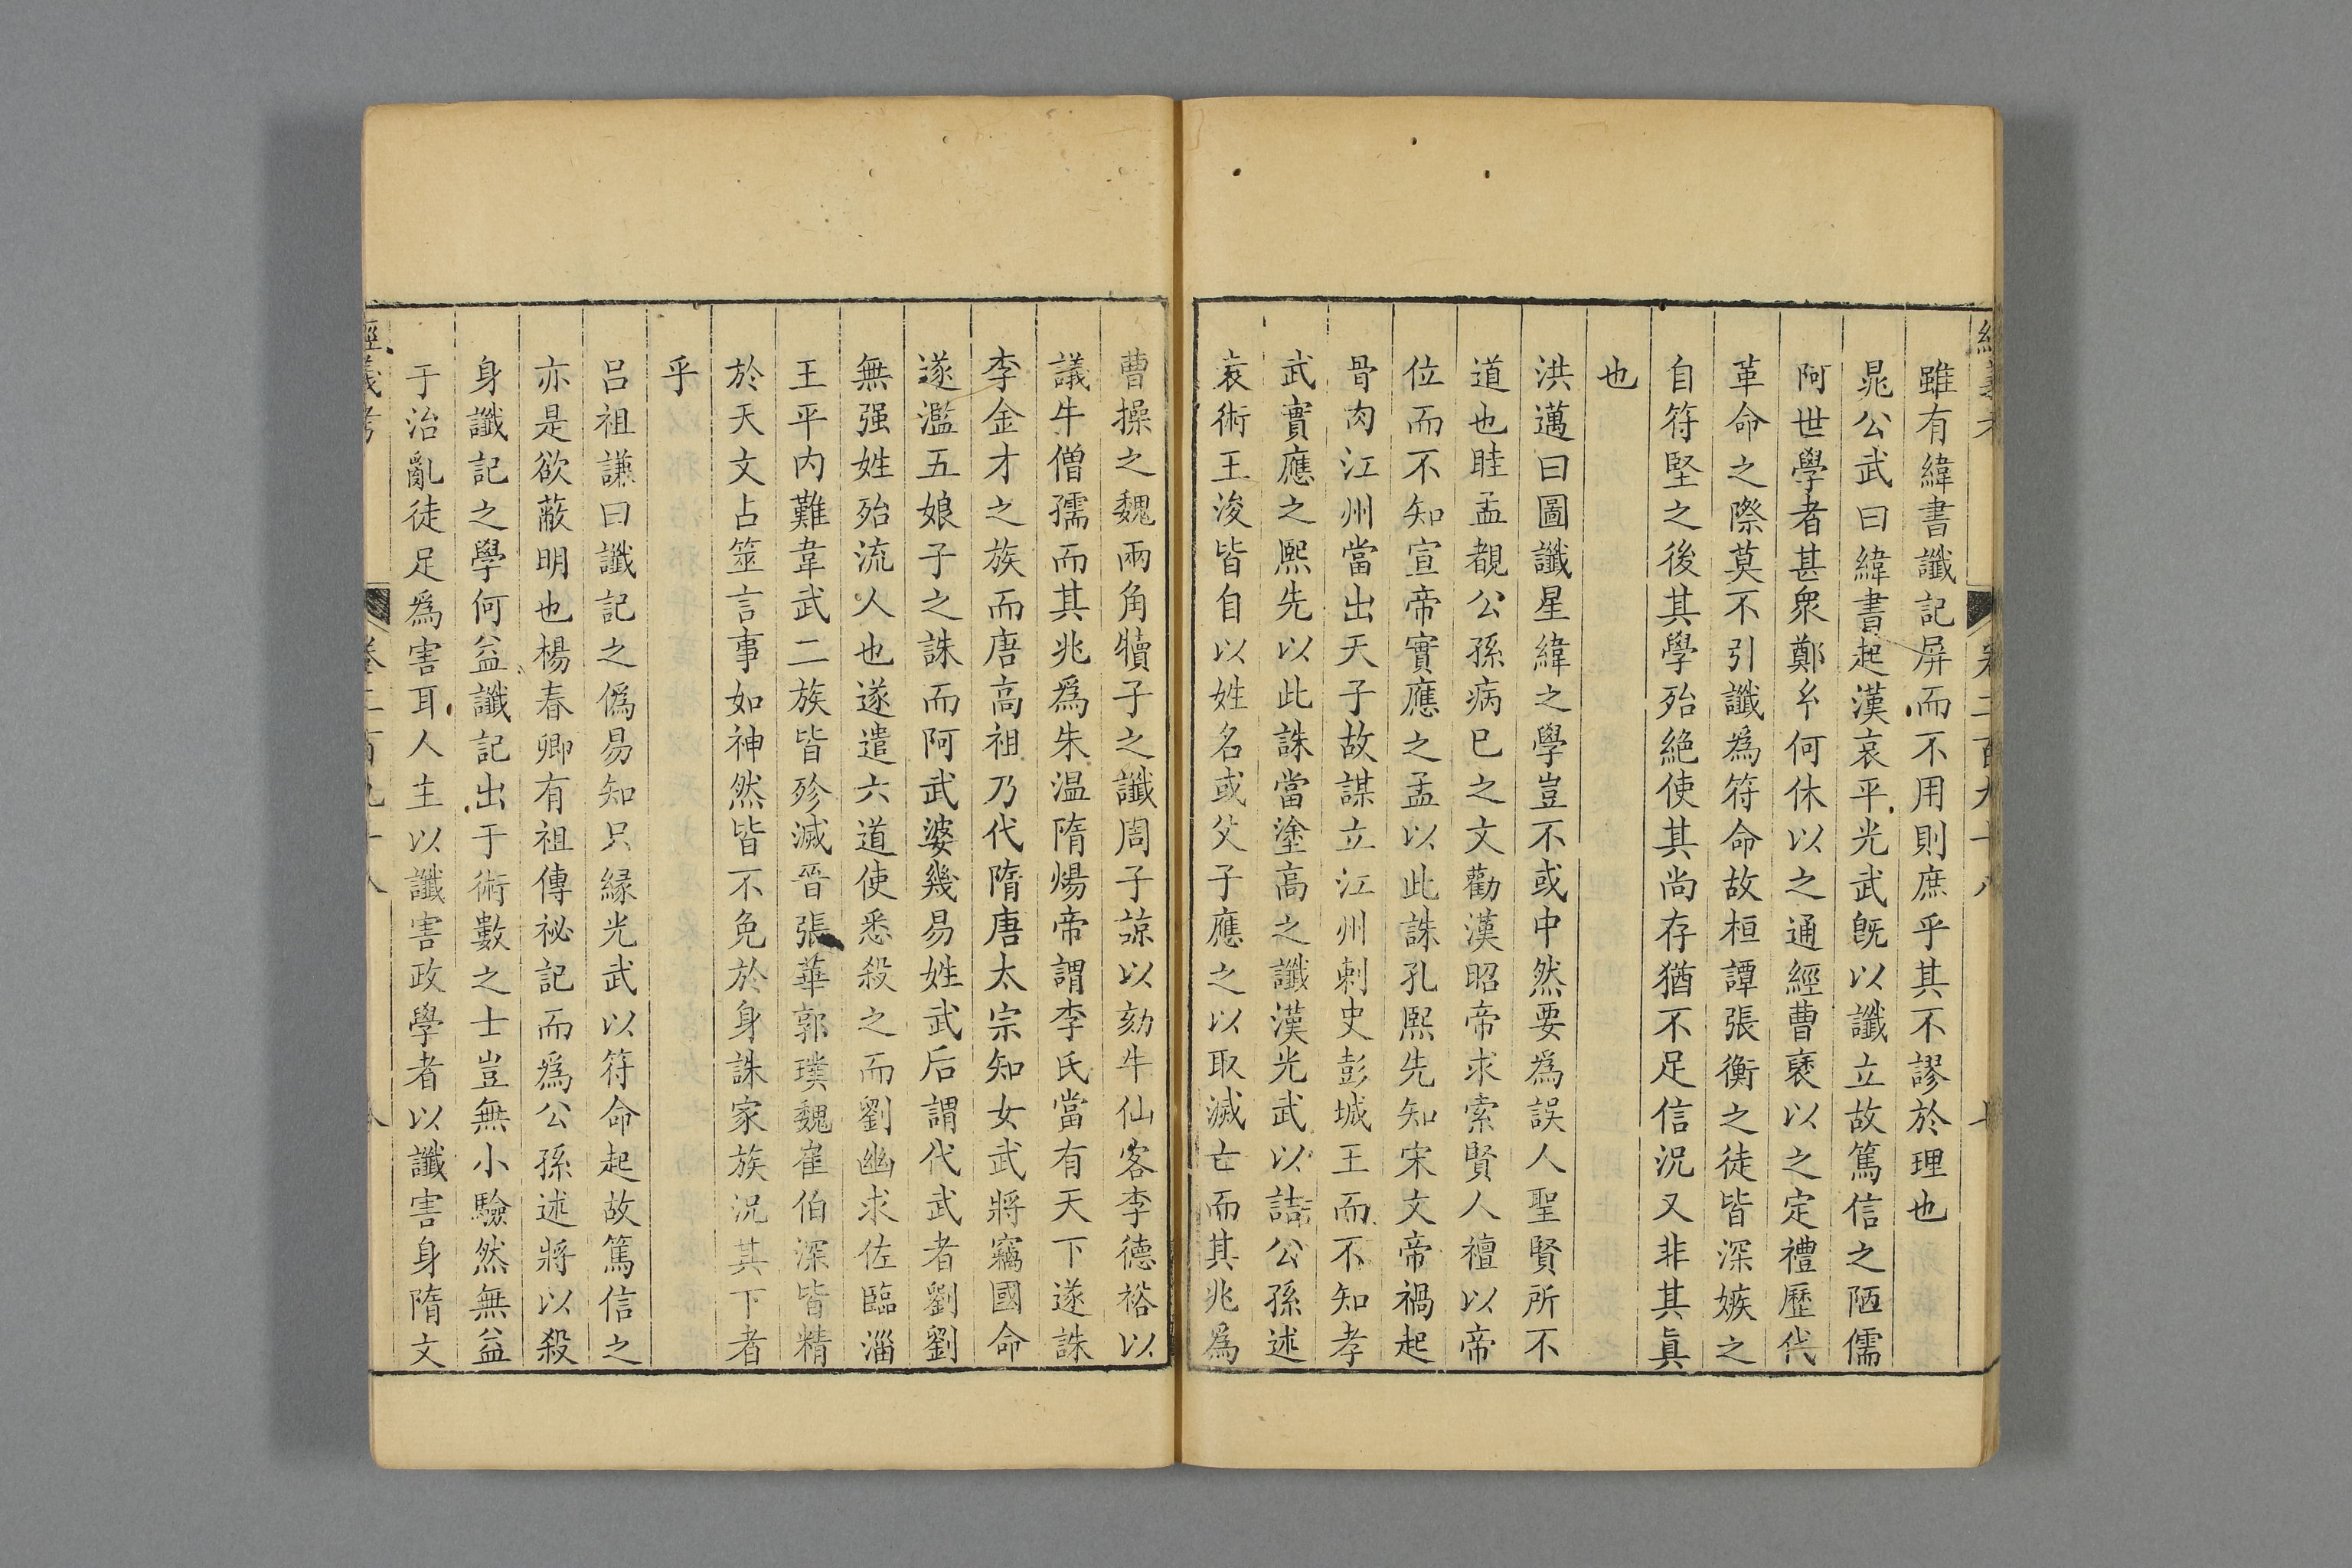 雖有緯書讖記屏而不用則庶乎其不謬於理也
晁公武曰緯書起漢哀平光武旣以讖立故篤信之陋儒
阿世學者甚衆鄭𢆯何休以之通經曹褒以之定禮歷代
革命之際莫不引讖爲符命故桓譚張衡之徒皆深嫉之
自符堅之後其學殆絶使其尚存猶不足信况又非其眞
也
洪邁曰圖讖星緯之學豈不或中然要爲誤人聖賢所不
道也眭孟覩公孫病巳之文勸漢昭帝求索賢人襢以帝
位而不知宣帝實應之孟以此誅孔熙先知宋文帝禍起
骨肉江州當出天子故謀立江州刺史彭城王而不知孝
武實應之熙先以此誅當塗高之讖漢光武以詰公孫述
袁術王浚皆自以姓名或父子應之以取滅亡而其兆爲
曹操之魏兩角犢子之讖周子諒以劾牛仙客李德裕以
議牛僧孺而其兆爲朱温隋煬帝謂李氏當有天下遂誅
李金才之族而唐高祖乃代隋唐太宗知女武將竊國命
遂濫五娘子之誅而阿武婆幾易姓武后謂代武者劉劉
無强姓殆流人也遂遣六道使悉殺之而劉幽求佐臨淄
王平内難韋武二族皆殄滅晉張華郭璞魏崔伯深皆精
於天文占筮言事如神然皆不免於身誅家族况其下者
乎
吕祖謙曰讖記之僞易知只緣光武以符命起故篤信之
亦是欲蔽明也楊春卿有祖傳祕記而爲公孫述將以殺
身讖記之學何益讖記出于術數之士豈無小驗然無益
于治亂徒足爲害耳人主以讖害政學者以讖害身隋文
經義考
卷二百九十八